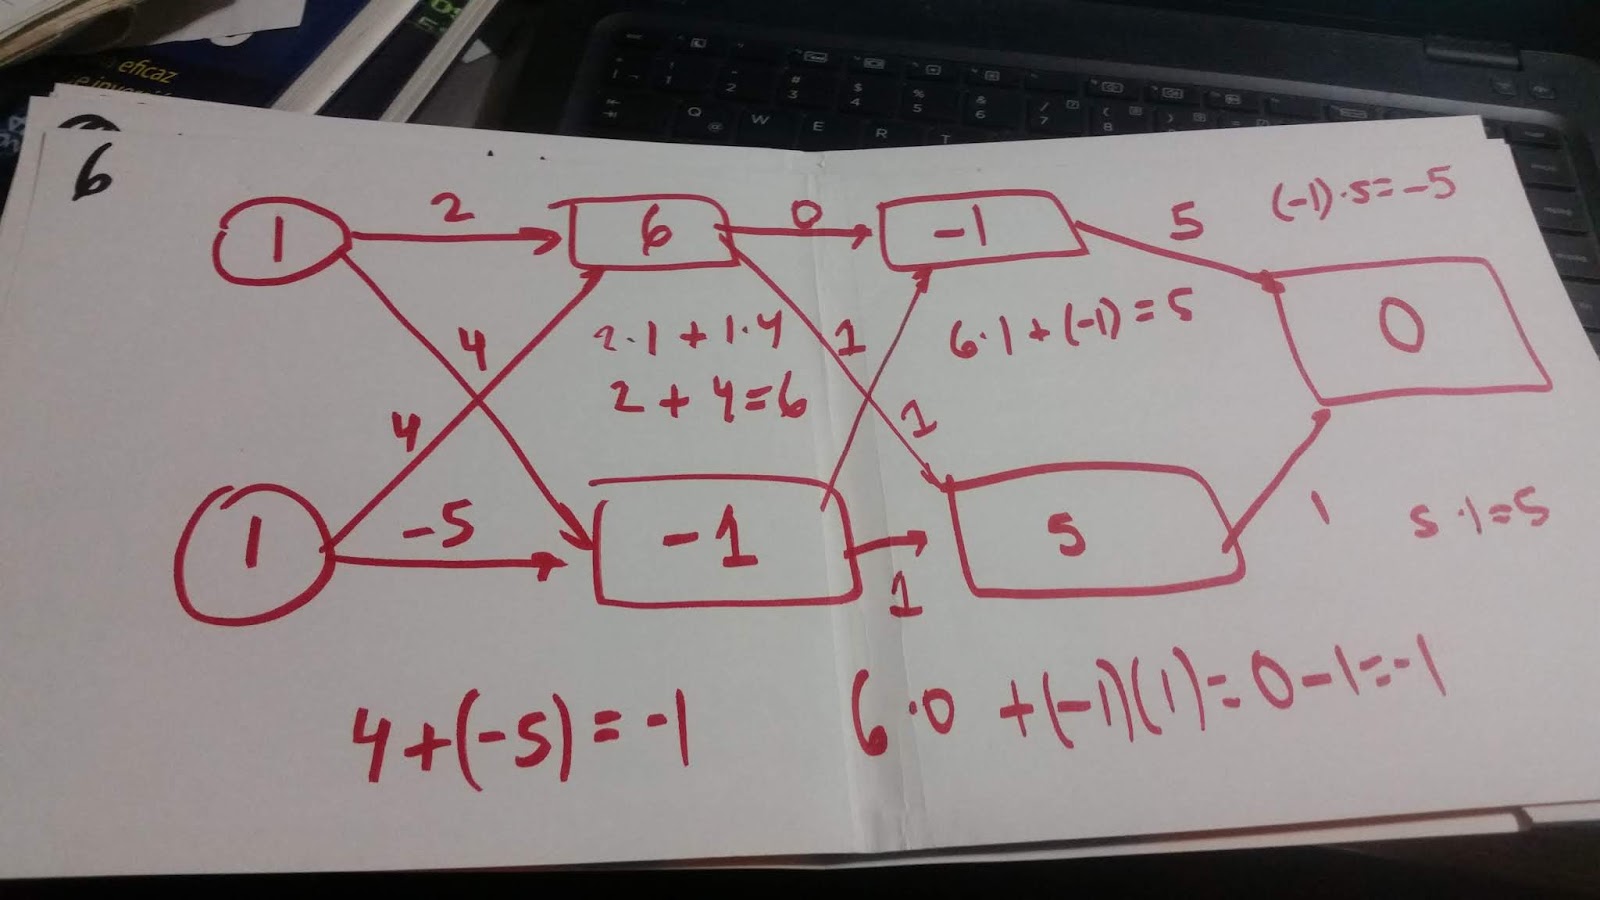 eficaz
6
1 2 6 0 -1 5 (-1)·5=-5
0
4 2·1 + 1·4 1 6·1 + (-1) = 5
4 2 + 4=6 1
1 -5 -1 1 5 1 5·1=5
4+(-5)=-1
6·0 +(-1)(1)=0-1=-1